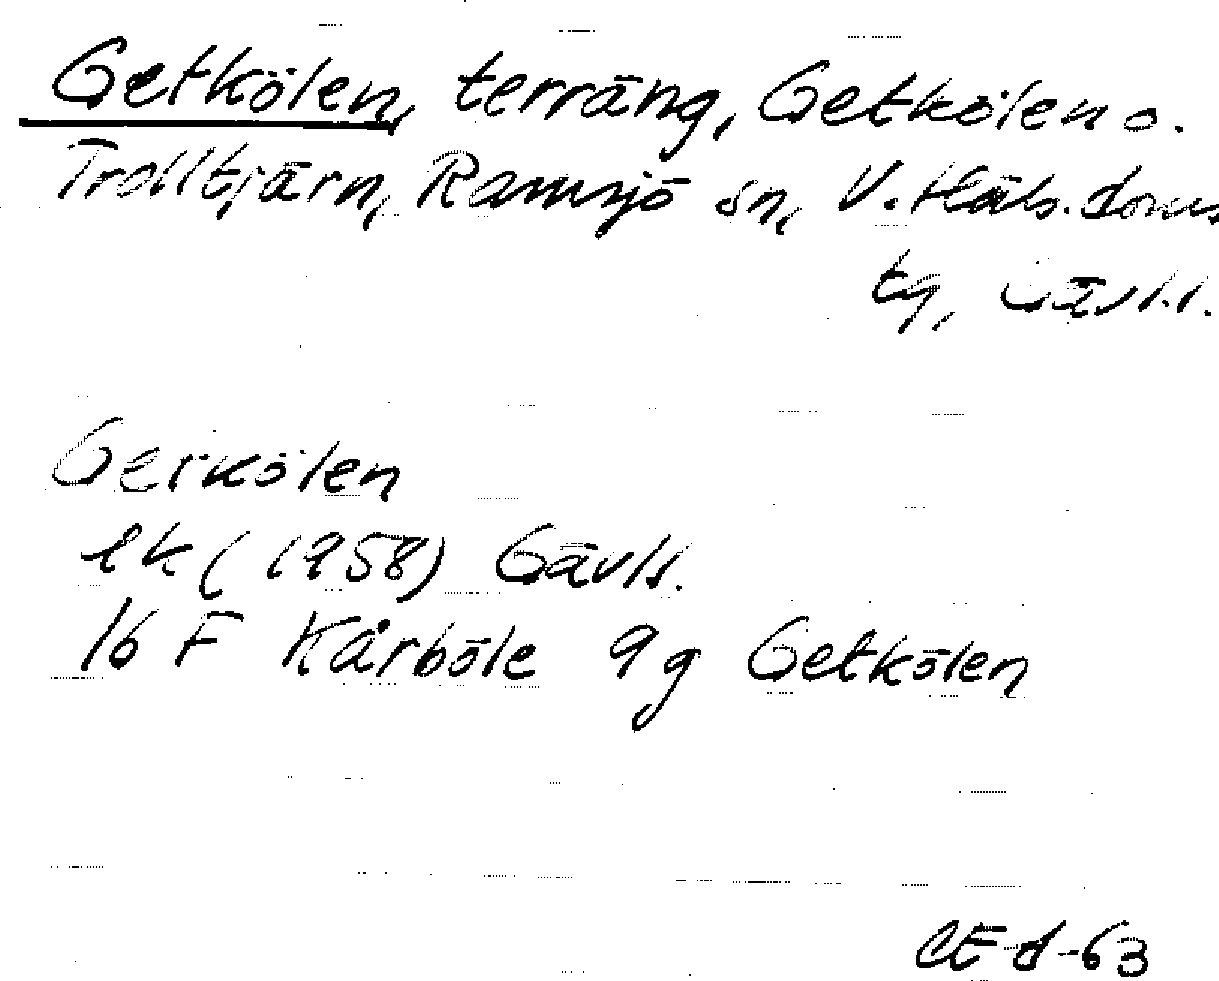 Getkölen, terräng, Getkölen o.
Trolltjärn, Ramsjö sn, V. Häls. doms
tg, Gävl.l.
Getkölen
ek (1958) Gävls.
16 F Kårböle 9g Getkölen